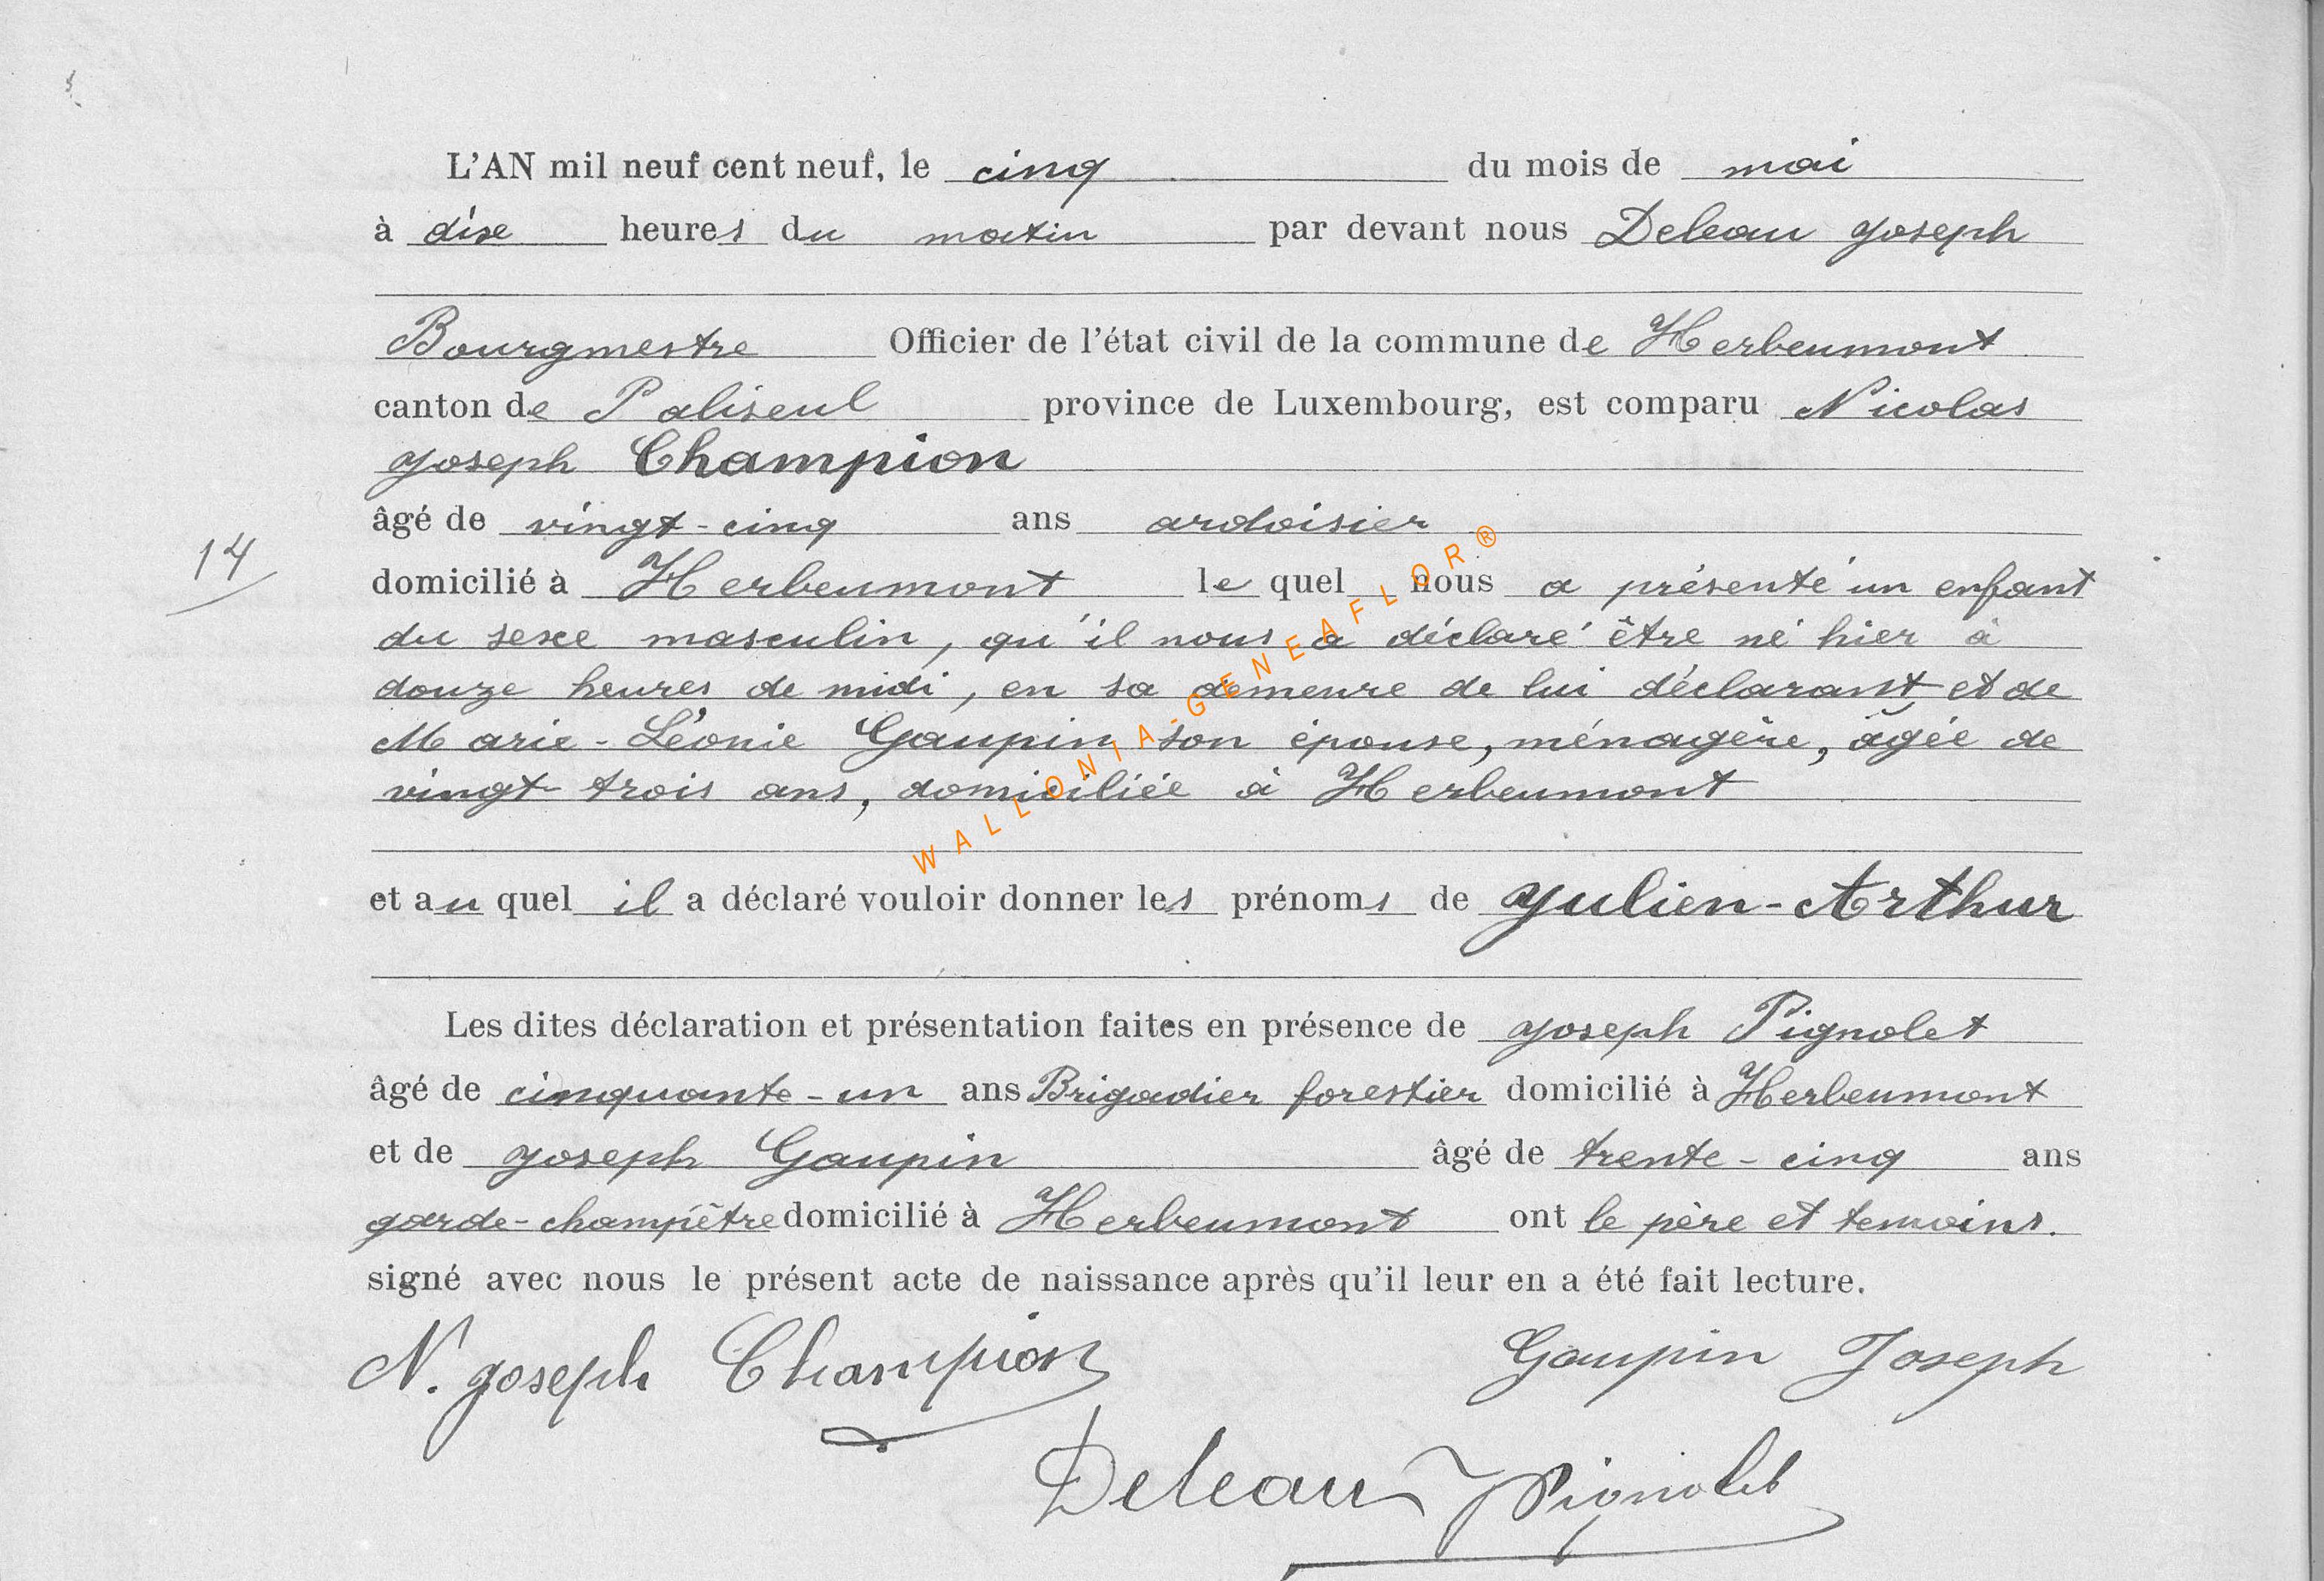 L'AN mil neuf cent neuf, le cinq du mois de mai
à dix heures du matin par devant nous Deleau Joseph
Bourgmestre Officier de l'état civil de la commune de Herbeumont
canton de Paliseul province de Luxembourg, est comparu Nicolas
Joseph Champion
âgé de vingt-cinq ans ardoisier
14
domicilié à Herbeumont le quel nous a présenté un enfant
du sexe masculin, qu'il nous a déclaré être né hier à
douze heures de midi, en sa demeure de lui déclarant et de
Marie-Léonie Gaupin son épouse, ménagère, âgée de
vingt-trois ans, domiciliée à Herbeumont
WALLONIA-GENEAFLOR®
et au quel il a déclaré vouloir donner les prénoms de Julien-Arthur
Les dites déclaration et présentation faites en présence de Joseph Pignolet
âgé de cinquante-un ans Brigadier forestier domicilié à Herbeumont
et de Joseph Gaupin âgé de trente-cinq ans
garde-champêtre domicilié à Herbeumont ont le père et temoins.
signé avec nous le présent acte de naissance après qu'il leur en a été fait lecture.
N. Joseph Champion Gaupin Joseph
Deleau Pignolet